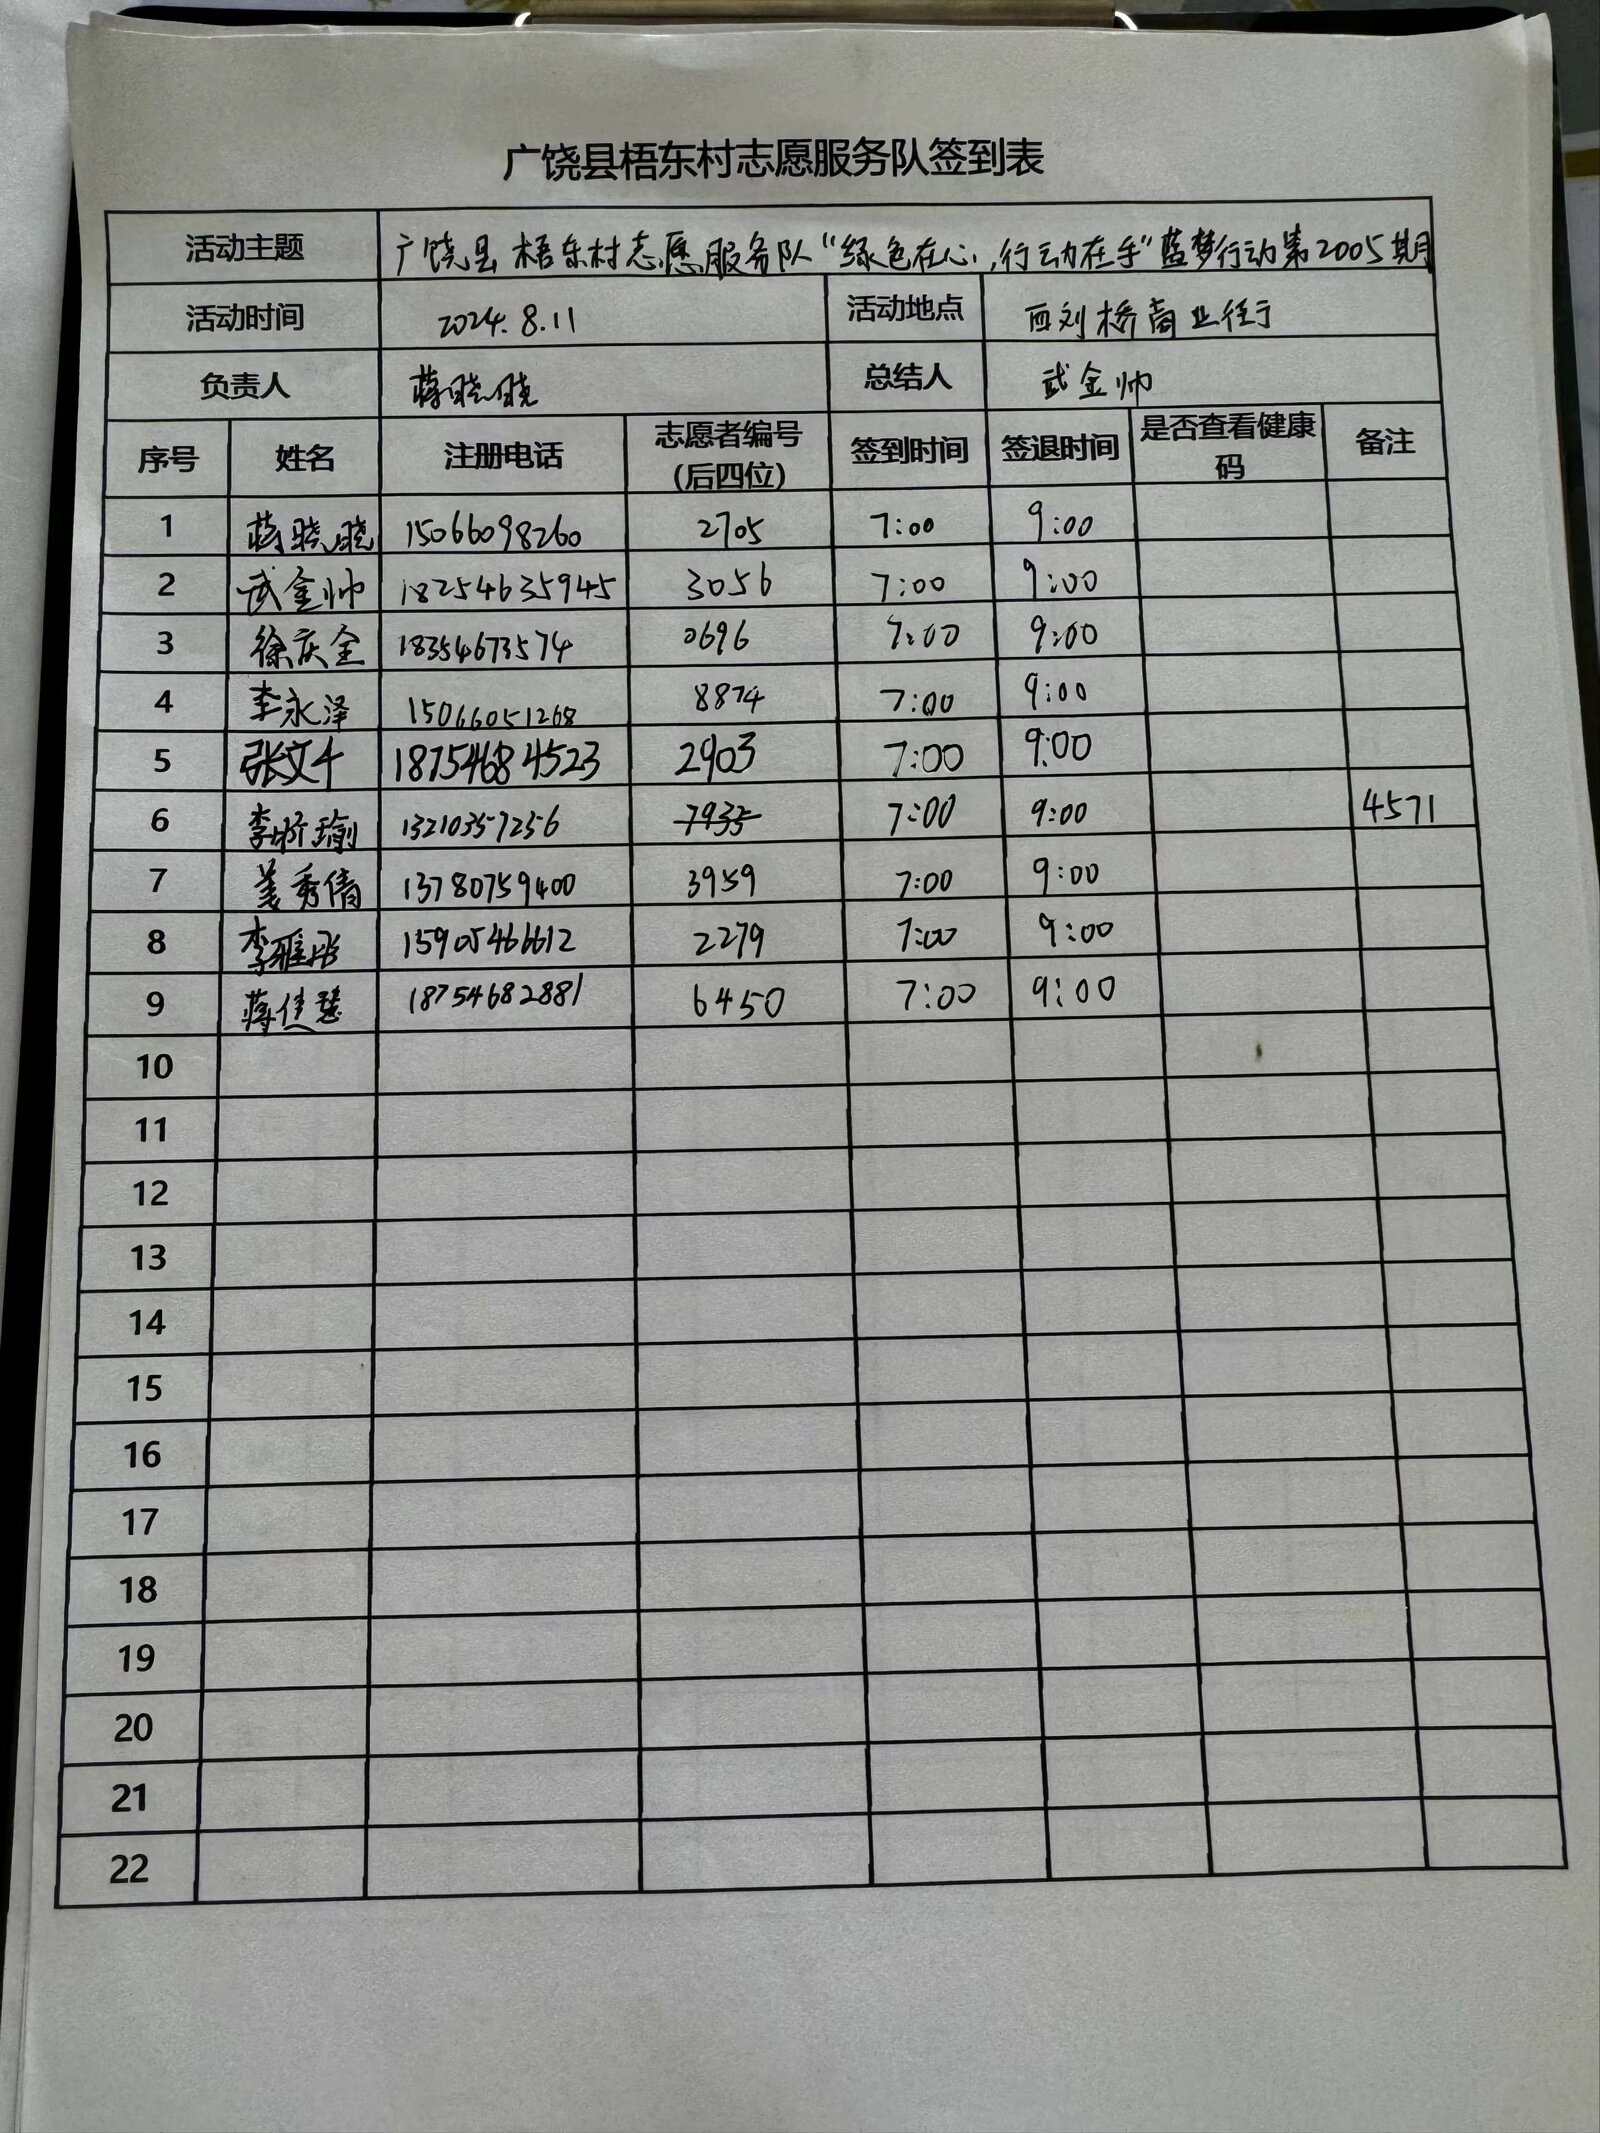 广饶县梧东村志愿服务队签到表
活动主题 广饶县梧东村志愿服务队“绿色在心,行动在手”蓝梦行动第2005期
活动时间 2024.8.11 活动地点 西刘桥商业街
负责人 蒋晓晓 总结人 武金帅
序号 姓名 注册电话 志愿者编号(后四位) 签到时间 签退时间 是否查看健康码 备注
1 蒋晓晓 15066098260 2705 7:00 9:00
2 武金帅 18254635945 3056 7:00 9:00
3 徐庆全 18354673574 0696 7:00 9:00
4 李永泽 15066051268 8874 7:00 9:00
5 张文千 18754684523 2903 7:00 9:00
6 李娇瑜 13210357256 7935 7:00 9:00 4571
7 姜秀倩 13780759400 3959 7:00 9:00
8 李雅彤 15905466612 2279 7:00 9:00
9 蒋佳慧 18754682881 6450 7:00 9:00
10
11
12
13
14
15
16
17
18
19
20
21
22